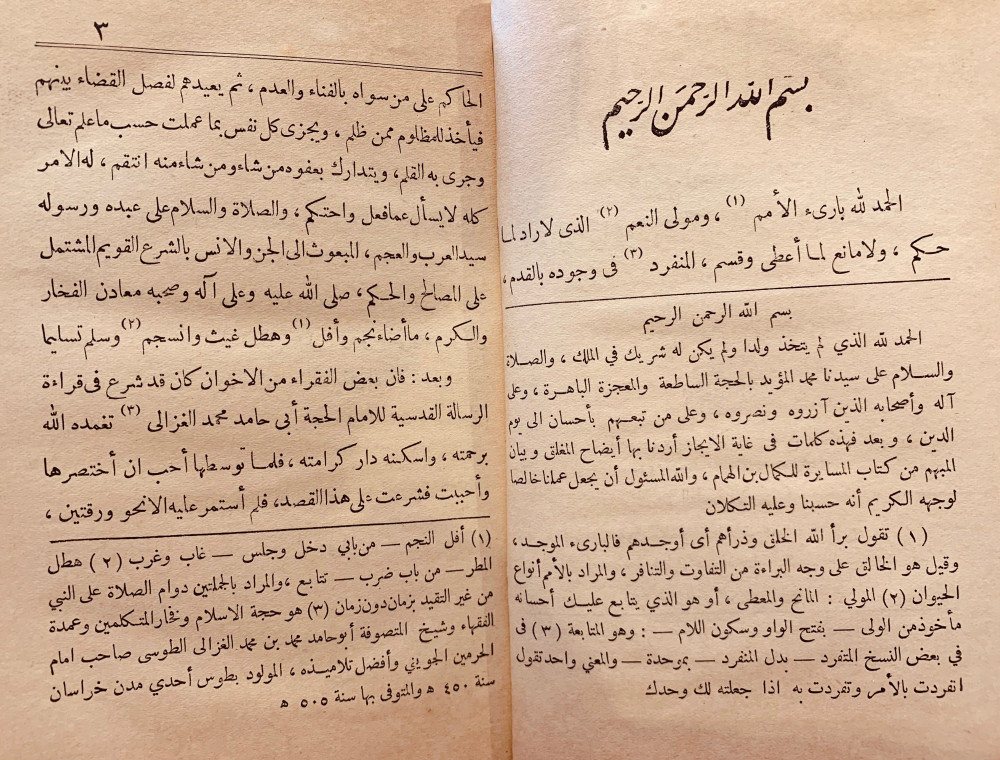 بسم الله الرحمن الرحيم
الحمد لله بارىء الأمم (١) ، ومولى النعم (٢) الذى لاراد لما
حكم ، ولامانع لما أعطى وقسم ، المنفرد (٣) فى وجوده بالقدم ،
بسم الله الرحمن الرحيم
الحمد لله الذي لم يتخذ ولدا ولم يكن له شريك في الملك ، والصلاة
والسلام على سيدنا محمد المؤيد بالحجة الساطعة والمعجزة الباهرة ، وعلى
آله وأصحابه الذين آزروه ونصروه ، وعلى من تبعهم بأحسان الى يوم
الدين ، و بعد فهذه كلمات فى غاية الايجاز أردنا بها أيضاح المغلق و بيان
المبهم من كتاب المسايرة للكمال بن الهمام ، والله المسئول أن يجعل عملنا خالصا
لوجهه الكريم أنه حسبنا وعليه التكلان
(١) تقول برأ الله الخلق وذرأهم أى أوجدهم فالبارىء الموجد ،
وقيل هو الخالق على وجه البراءة من التفاوت والتنافر ، والمراد بالأمم أنواع
الحيوان (٢) المولي : المانح والمعطى ، أو هو الذي يتابع عليك أحسانه
مأخوذ من الولى — بفتح الواو وسكون اللام — : وهو المتابعة (٣) فى
في بعض النسخ المتفرد — بدل المنفرد — بموحدة — والمعني واحد تقول
انفردت بالأمر وتفردت به اذا جعلته لك وحدك
٣
الحاكم على من سواه بالفناء والعدم ، ثم يعيدهم لفصل القضاء بينهم
فيأخذ للمظلوم ممن ظلم ، ويجزى كل نفس بما عملت حسب ماعلم تعالى
وجرى به القلم ، ويتدارك بعفوه من شاء ومن شاء منه انتقم ، له الامر
كله لايسأل عما فعل واحتكم ، والصلاة والسلام على عبده ورسوله
سيد العرب والعجم ، المبعوث الى الجن والانس بالشرع القويم المشتمل
على المصالح والحكم ، صلى الله عليه وعلى آله وصحبه معادن الفخار
والكرم ، ماأضاء نجم وأفل (١) وهطل غيث وانسجم (٢) وسلم تسليما
وبعد : فان بعض الفقراء من الاخوان كان قد شرع فى قراءة
الرسالة القدسية للامام الحجة أبي حامد محمد الغزالى (٣) تغمده الله
برحمته ، واسكنه دار كرامته ، فلما توسطها أحب ان أختصرها
وأحببت فشرعت على هذا القصد ، فلم أستمر عليه الانحو ورقتين ،
(١) أفل النجم — من بابي دخل وجلس — غاب وغرب (٢) هطل
المطر — من باب ضرب — تتابع ، والمراد بالجملتين دوام الصلاة على النبي
من غير التقيد بزمان دون زمان (٣) هو حجة الاسلام وفخار المتكلمين وعمدة
الفقهاء وشيخ المتصوفة أبو حامد محمد بن محمد الغزالى الطوسى صاحب امام
الحرمين الجويني وأفضل تلاميذه ، المولود بطوس أحدي مدن خراسان
سنة ٤٥٠ ه والمتوفى بها سنة ٥٠٥ ه